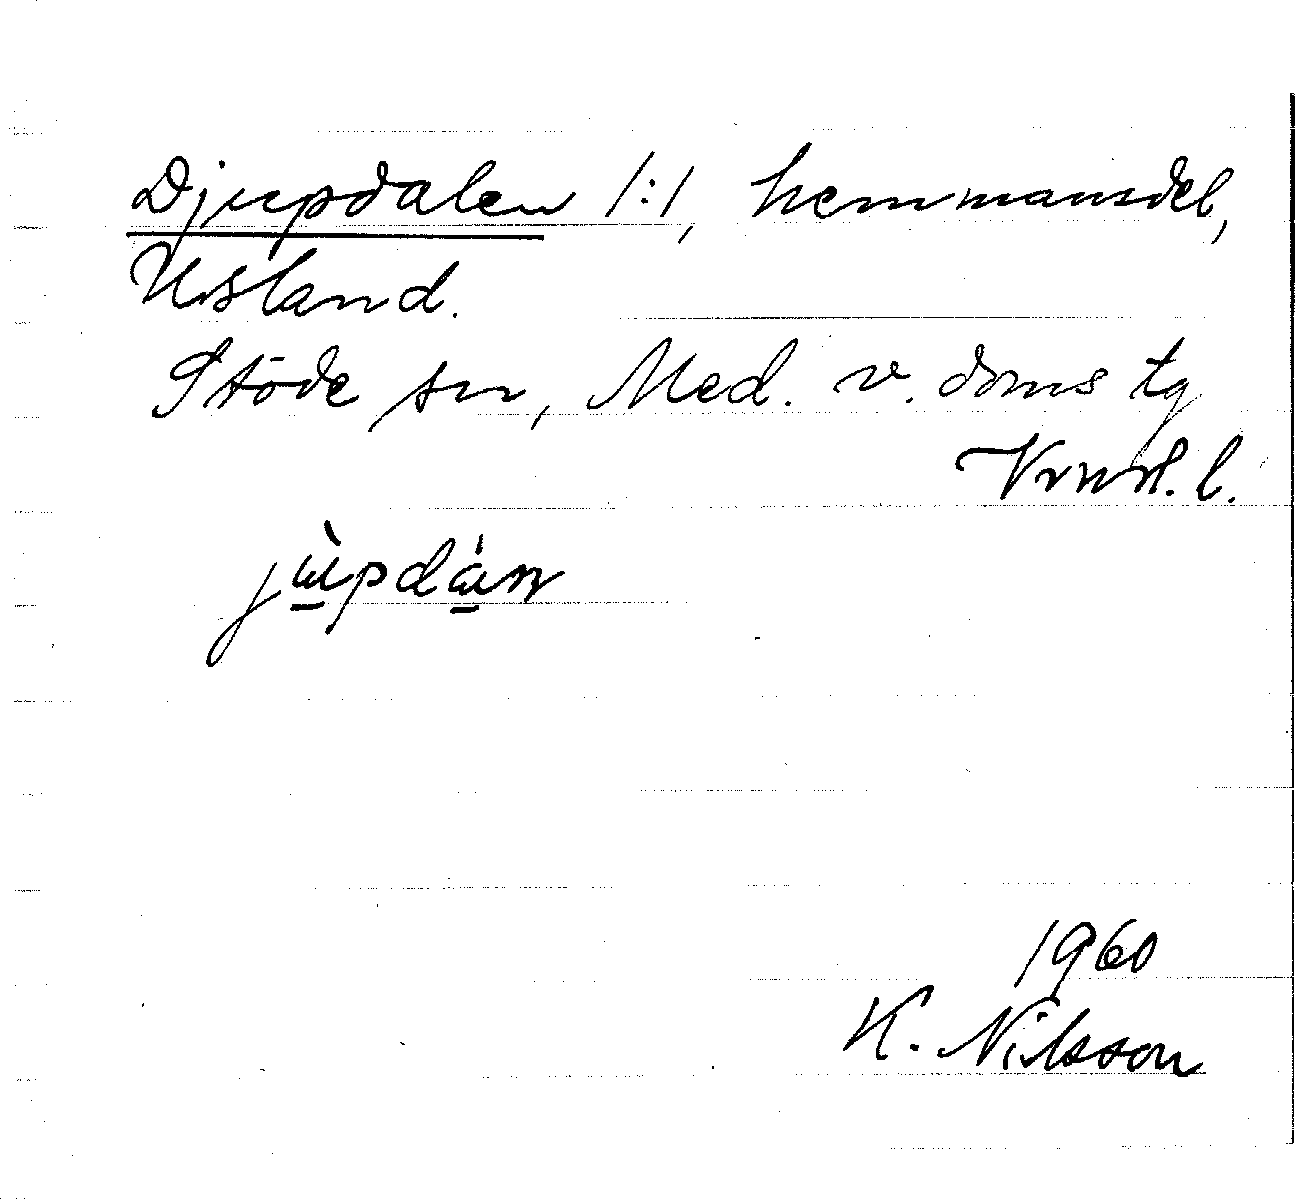 Djupdalen 1:1, hemmansdel,
Usland.
Stöde sn, Med. v. doms tg
Vrnrl. l.
jùpdán
1960
K. Nilsson